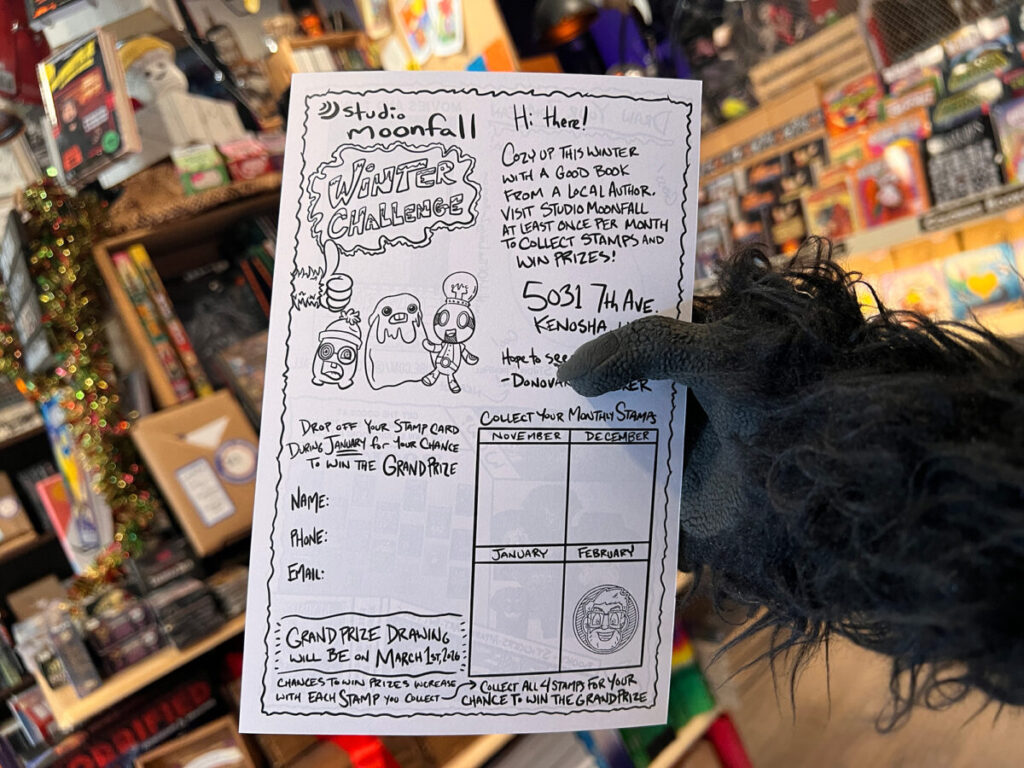 studio
moonfall
WINTER
CHALLENGE
Hi there!
COZY UP THIS WINTER
WITH A GOOD BOOK
FROM A LOCAL AUTHOR.
VISIT STUDIO MOONFALL
AT LEAST ONCE PER MONTH
TO COLLECT STAMPS AND
WIN PRIZES!
5031 7th AVE.
KENOSHA
Hope to see
DROP OFF YOUR STAMP CARD
DURING JANUARY for YOUR CHANCE
TO WIN THE GRAND PRIZE
NAME:
PHONE:
EMAIL:
COLLECT YOUR MONTHLY STAMPS
NOVEMBER DECEMBER
JANUARY FEBRUARY
GRAND PRIZE DRAWING
WILL BE ON MARCH 1ST, 2026
CHANCES TO WIN PRIZES INCREASE
WITH EACH STAMP YOU COLLECT
COLLECT ALL 4 STAMPS FOR YOUR
CHANCE TO WIN THE GRAND PRIZE